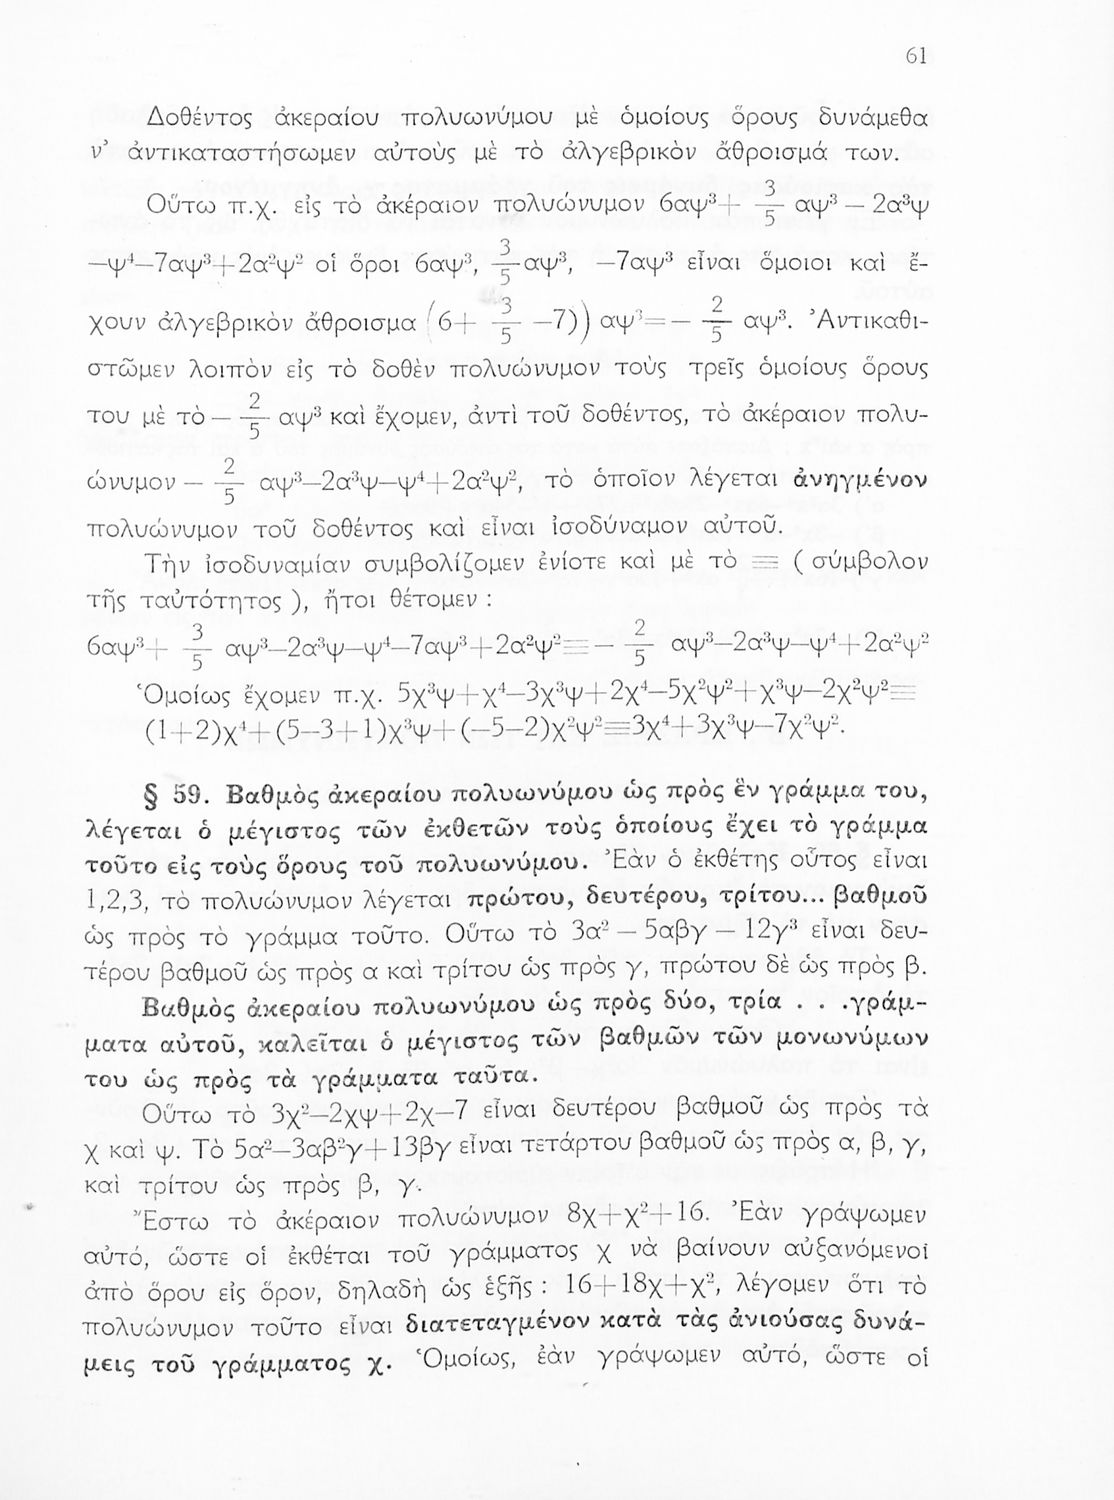 61
Δοθέντος ἀκεραίου πολυωνύμου μὲ ὁμοίους ὅρους δυνάμεθα
ν’ ἀντικαταστήσωμεν αὐτοὺς μὲ τὸ ἀλγεβρικὸν ἄθροισμά των.
Οὕτω π.χ. εἰς τὸ ἀκέραιον πολυώνυμον 6αψ³+ 3/5 αψ³ — 2α³ψ
—ψ⁴—7αψ³+2α²ψ² οἱ ὅροι 6αψ³, 3/5 αψ³, —7αψ³ εἶναι ὅμοιοι καὶ ἔ-
χουν ἀλγεβρικὸν ἄθροισμα (6+ 3/5 —7)) αψ³=— 2/5 αψ³. Ἀντικαθι-
στῶμεν λοιπὸν εἰς τὸ δοθὲν πολυώνυμον τοὺς τρεῖς ὁμοίους ὅρους
του μὲ τὸ — 2/5 αψ³ καὶ ἔχομεν, ἀντὶ τοῦ δοθέντος, τὸ ἀκέραιον πολυ-
ώνυμον — 2/5 αψ³—2α³ψ—ψ⁴+2α²ψ², τὸ ὁποῖον λέγεται ἀνηγμένον
πολυώνυμον τοῦ δοθέντος καὶ εἶναι ἰσοδύναμον αὐτοῦ.
Τὴν ἰσοδυναμίαν συμβολίζομεν ἐνίοτε καὶ μὲ τὸ ≡ ( σύμβολον
τῆς ταὐτότητος ), ἤτοι θέτομεν :
6αψ³+ 3/5 αψ³—2α³ψ—ψ⁴—7αψ³+2α²ψ²≡— 2/5 αψ³—2α³ψ—ψ⁴+2α²ψ²
Ὁμοίως ἔχομεν π.χ. 5χ³ψ+χ⁴—3χ³ψ+2χ⁴—5χ²ψ²+χ³ψ—2χ²ψ²≡
(1+2)χ⁴+(5—3+1)χ³ψ+(—5—2)χ²ψ²≡3χ⁴+3χ³ψ—7χ²ψ².
§ 59. Βαθμὸς ἀκεραίου πολυωνύμου ὡς πρὸς ἓν γράμμα του,
λέγεται ὁ μέγιστος τῶν ἐκθετῶν τοὺς ὁποίους ἔχει τὸ γράμμα
τοῦτο εἰς τοὺς ὅρους τοῦ πολυωνύμου. Ἐὰν ὁ ἐκθέτης οὗτος εἶναι
1,2,3, τὸ πολυώνυμον λέγεται πρώτου, δευτέρου, τρίτου... βαθμοῦ
ὡς πρὸς τὸ γράμμα τοῦτο. Οὕτω τὸ 3α² — 5αβγ — 12γ³ εἶναι δευ-
τέρου βαθμοῦ ὡς πρὸς α καὶ τρίτου ὡς πρὸς γ, πρώτου δὲ ὡς πρὸς β.
Βαθμὸς ἀκεραίου πολυωνύμου ὡς πρὸς δύο, τρία . . .γράμ-
ματα αὐτοῦ, καλεῖται ὁ μέγιστος τῶν βαθμῶν τῶν μονωνύμων
του ὡς πρὸς τὰ γράμματα ταῦτα.
Οὕτω τὸ 3χ²—2χψ+2χ—7 εἶναι δευτέρου βαθμοῦ ὡς πρὸς τὰ
χ καὶ ψ. Τὸ 5α²—3αβ²γ+13βγ εἶναι τετάρτου βαθμοῦ ὡς πρὸς α, β, γ,
καὶ τρίτου ὡς πρὸς β, γ.
Ἔστω τὸ ἀκέραιον πολυώνυμον 8χ+χ²+16. Ἐὰν γράψωμεν
αὐτό, ὥστε οἱ ἐκθέται τοῦ γράμματος χ νὰ βαίνουν αὐξανόμενοι
ἀπὸ ὅρου εἰς ὅρον, δηλαδὴ ὡς ἑξῆς : 16+18χ+χ², λέγομεν ὅτι τὸ
πολυώνυμον τοῦτο εἶναι διατεταγμένον κατὰ τὰς ἀνιούσας δυνά-
μεις τοῦ γράμματος χ. Ὁμοίως, ἐὰν γράψωμεν αὐτό, ὥστε οἱ